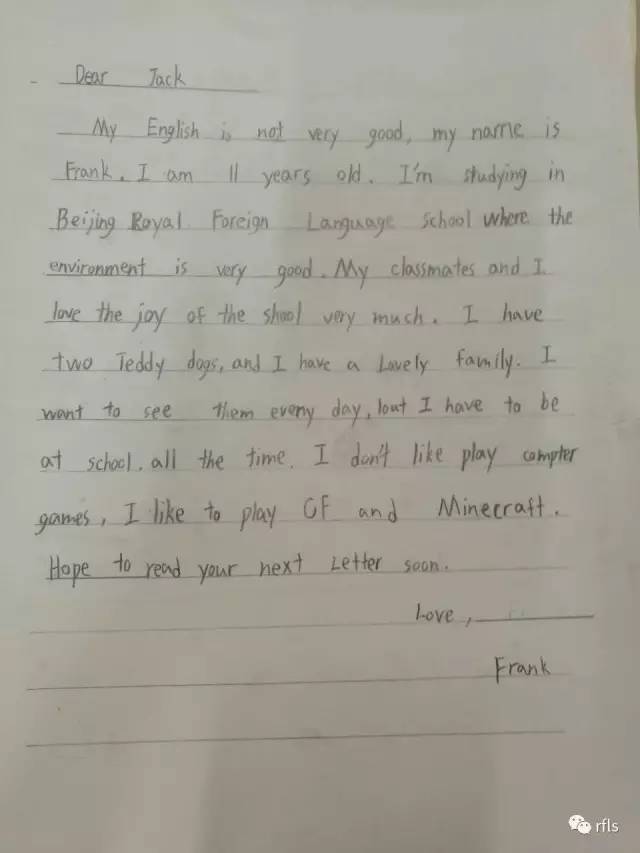 Dear Jack
My English is not very good, my name is
Frank. I am 11 years old. I'm studying in
Beijing Royal Foreign Language school where the
environment is very good. My classmates and I
love the joy of the shool very much. I have
two Teddy dogs, and I have a Lovely family. I
want to see them every day, but I have to be
at school. all the time. I don't like play compter
games, I like to play CF and Minecraft.
Hope to read your next Letter soon.
Love,
Frank
rfls